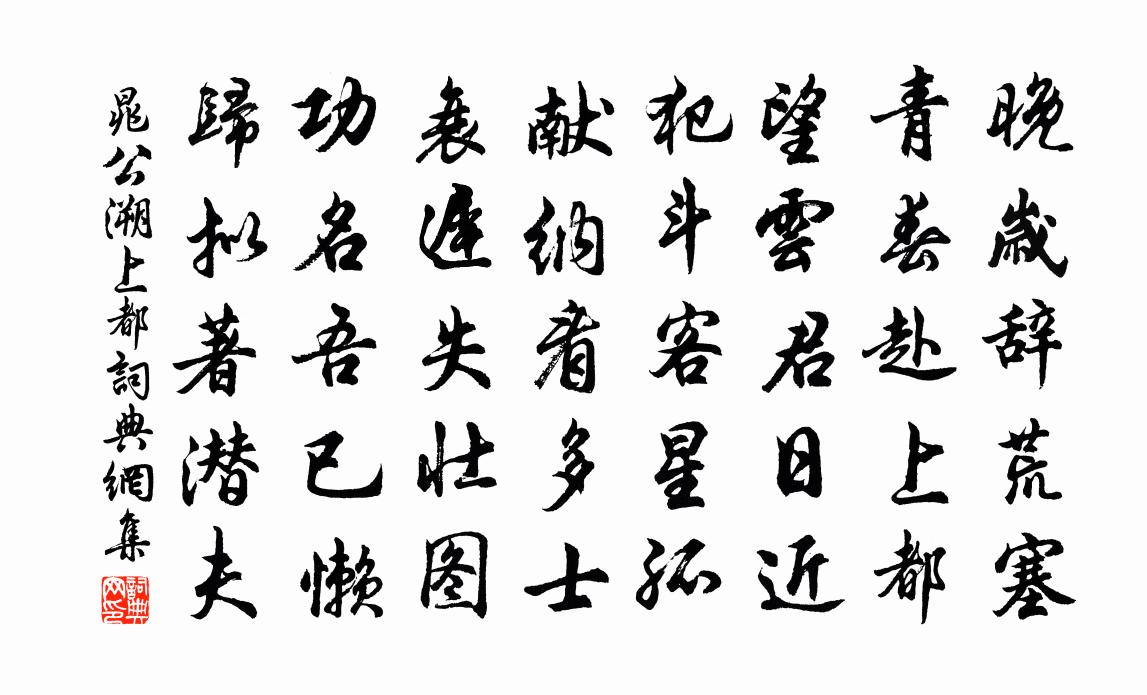 晚歲辞荒塞
青春赴上都
望雲君日近
犯斗客星孤
献纳看多士
衰遲失壮图
功名吾已懒
歸拟著潜夫
晁公溯上都詞典網集
詞典网印